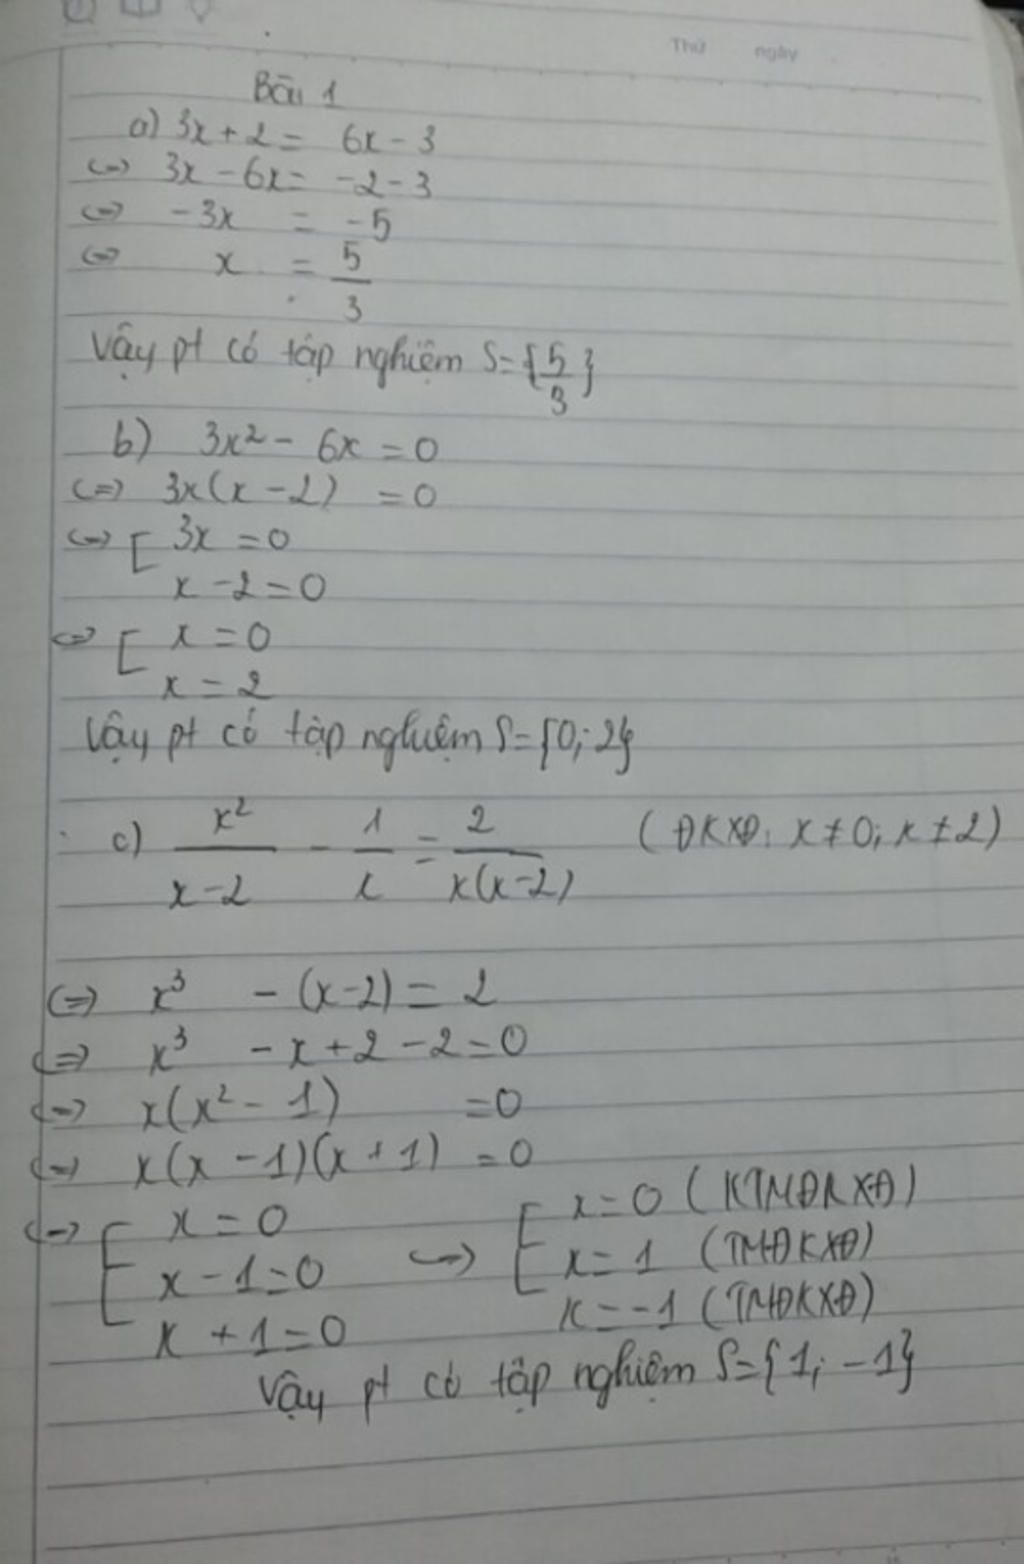 Thứ ngày
Bài 1
a) 3x + 2 = 6x - 3
<=> 3x - 6x = -2 - 3
<=> -3x = -5
<=> x = 5/3
Vậy pt có tập nghiệm S = {5/3}
b) 3x² - 6x = 0
<=> 3x(x - 2) = 0
<=> [ 3x = 0
x - 2 = 0
<=> [ x = 0
x = 2
Vậy pt có tập nghiệm S = {0; 2}
c) x²/(x - 2) - 1/x = 2/(x(x - 2)) (ĐKXĐ: x ≠ 0; x ≠ 2)
<=> x³ - (x - 2) = 2
<=> x³ - x + 2 - 2 = 0
<=> x(x² - 1) = 0
<=> x(x - 1)(x + 1) = 0
<=> [ x = 0 <=> [ x = 0 (KTMĐKXĐ)
x - 1 = 0 x = 1 (TMĐKXĐ)
x + 1 = 0 x = -1 (TMĐKXĐ)
Vậy pt có tập nghiệm S = {1; -1}